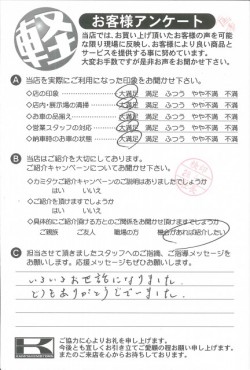 軽
お客様アンケート
当店では、お買い上げ頂いたお客様の声を可能
な限り現場に反映し、お客様により良い商品と
サービスを提供する事に努めています。
大変お手数ですが是非お声をお聞かせ下さい。
A 当店を実際にご利用になった印象をお聞かせ下さい。
◇店の印象 大満足 満足 ふつう やや不満 不満
◇店内・展示場の清掃 大満足 満足 ふつう やや不満 不満
◇お車の品揃え 大満足 満足 ふつう やや不満 不満
◇営業スタッフの対応 大満足 満足 ふつう やや不満 不満
◇納車時のお車の状態 大満足 満足 ふつう やや不満 不満
B 当店はご紹介を大切にしております。
ご紹介キャンペーンについてお聞かせ下さい。
◇カミタケご紹介キャンペーンのご説明はありましたでしょうか
はい いいえ
◇ご紹介を頂けますでしょうか
はい いいえ
◇具体的にご紹介頂ける方とのご関係をお聞かせ頂けますでしょうか
ご親族 ご友人 職場の方 機会があれば紹介したい
C 担当させて頂きましたスタッフへのご指摘、ご指導メッセージを
お願いします。応援メッセージもぜひお願いします。
いろいろお世話になりました。
どうもありがとうございました。
K
ご協力に心よりお礼を申し上げます。
今後とも宜しくお引き立てご愛顧の程お願い申し上げます。
またのご来店を心からお待ちしております。